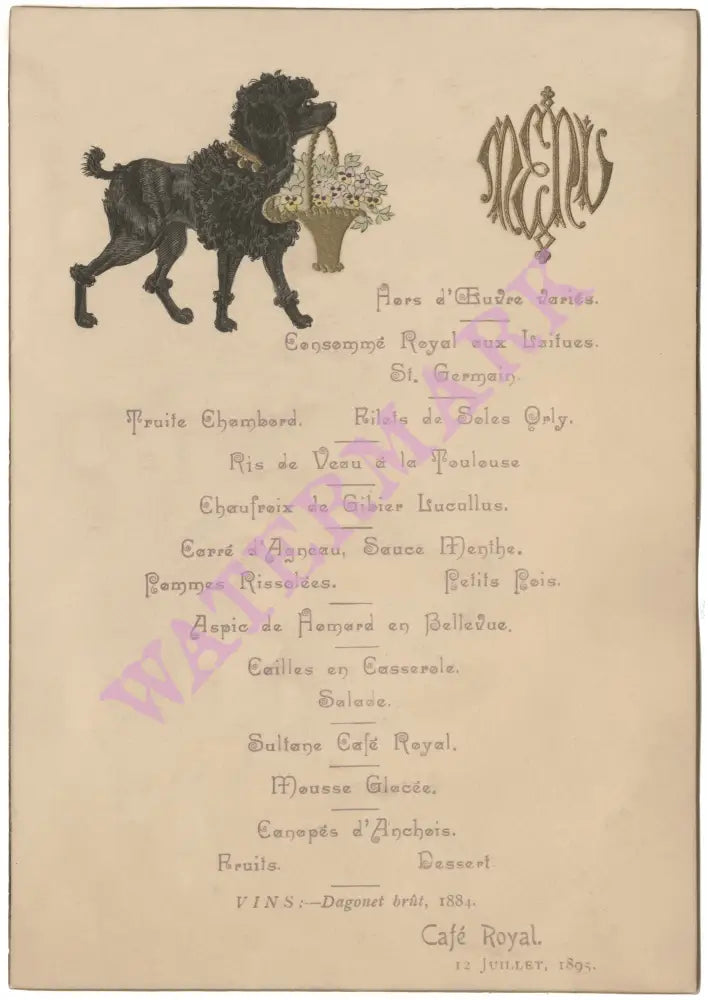 MENU
Hors d'Œuvre variés.
Consommé Royal aux Laitues.
St. Germain.
Truite Chambord. Filets de Soles Orly.
Ris de Veau à la Toulouse
Chaufroix de Gibier Lucullus.
Carré d'Agneau, Sauce Menthe.
Pommes Rissolées. Petits Pois.
Aspic de Homard en Bellevue.
Cailles en Casserole.
Salade.
Sultane Café Royal.
Mousse Glacée.
Canapés d'Anchois.
Fruits. Dessert
VINS:—Dagonet brût, 1884.
Café Royal.
12 JUILLET, 1895.
WATERMARK